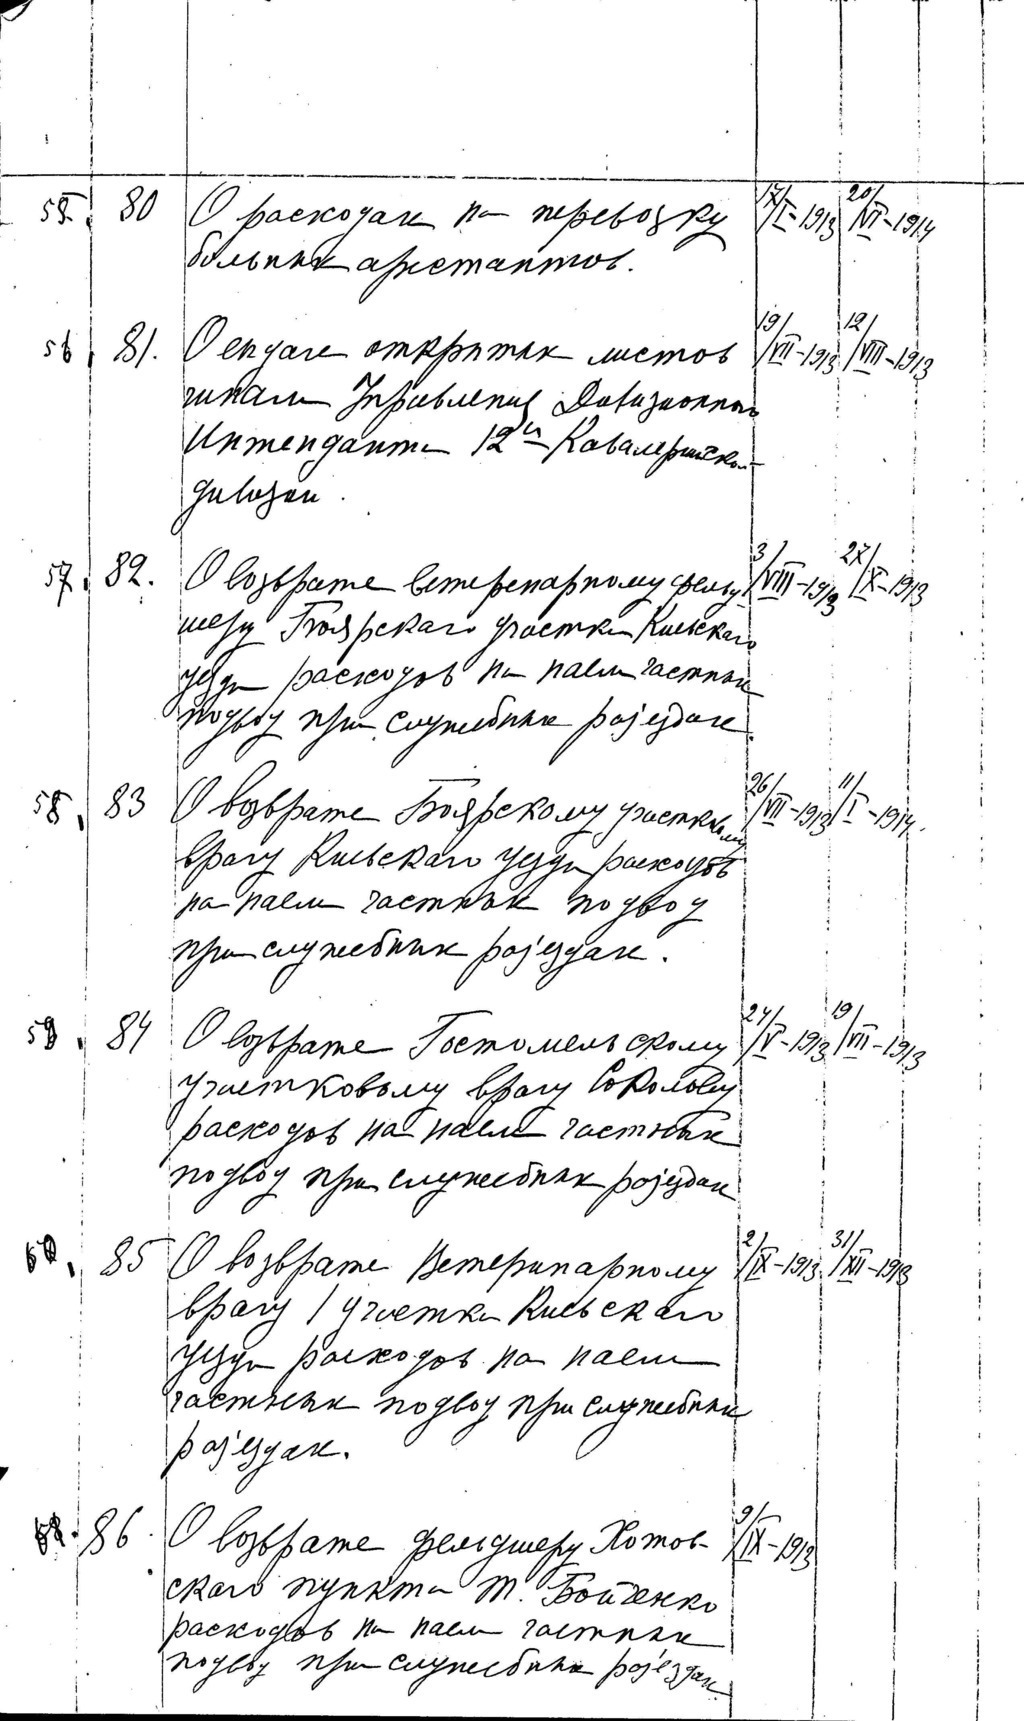 55. 80 О расходах на перевозку 17/I-1913 20/VI-1914
больных арестантов.
56. 81. О выдаче открытых листов 19/VII-1913 12/VIII-1913
чинам Управления Дивизионного
Интенданта 12й Кавалерийской
дивизии.
57. 82. О возврате ветеренарному фельд- 3/VIII-1913 27/X-1913
шеру Боярского участка Киевского
уезда расходов на наем частных
подвод при служебных разъездах.
58. 83 О возврате Боярскому участковому 26/VII-1913 11/I-1914.
врачу Киевского уезда расходов
на наем частных подвод
при служебных разъездах.
59. 84 О возврате Гостомельскому 24/V-1913 19/VII-1913
участковому врачу Соколову
расходов на наем частных
подвод при служебных разъездах
60. 85 О возврате Ветеринарному 2/IX-1913 31/XII-1913
врачу 1 участка Киевского
уезда расходов на наем
частных подвод при служебных
раз'ездах.
86. О возврате фельдшеру Хотов- 9/IX-1913
ского пункта Т. Бойченко
расходов на наем частных
подвод при служебных раз'ездах.